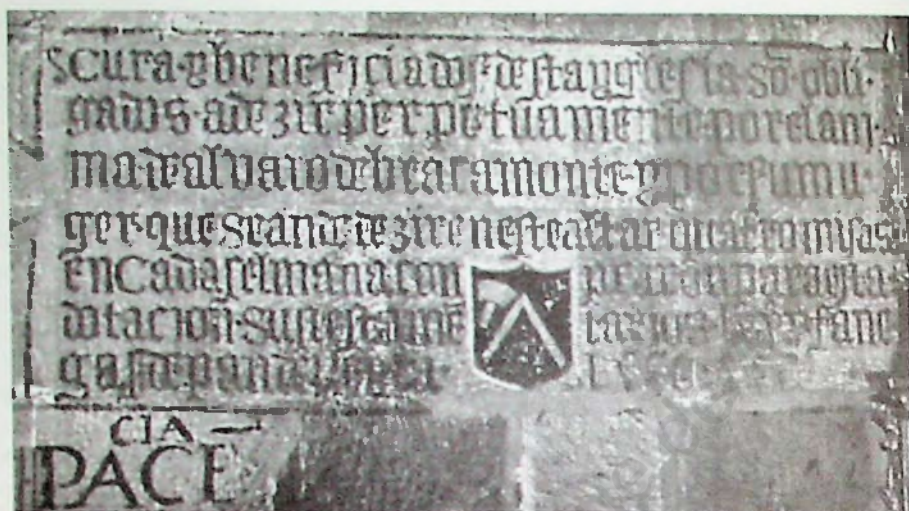 s cura · y beneficiados destayglesia sō obli·
gados · adezir perpetuamente porelani·
ma de alvaro de bracamonte · y por su mu·
ger · que se ande dezir en este altar quatro misas
en cada selmana con
dotacion · sus testamē tarios fane
gas de pan de
CIA
PACE